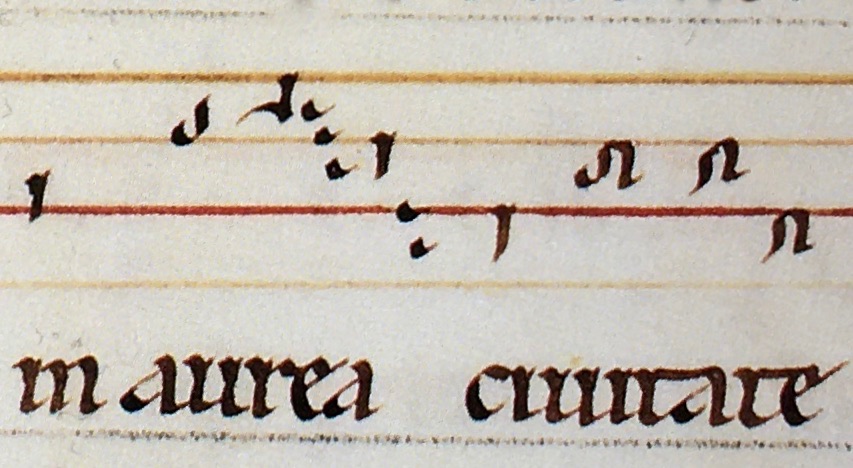 in aurea ciuitate